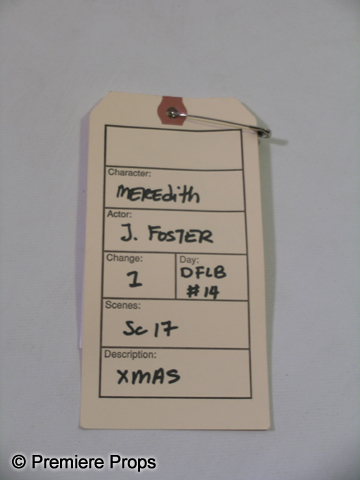 Character:
MEREdith
Actor:
J. FOSTER
Change:
1
Day:
DFLB
#14
Scenes:
Sc 17
Description:
XMAS
© Premiere Props